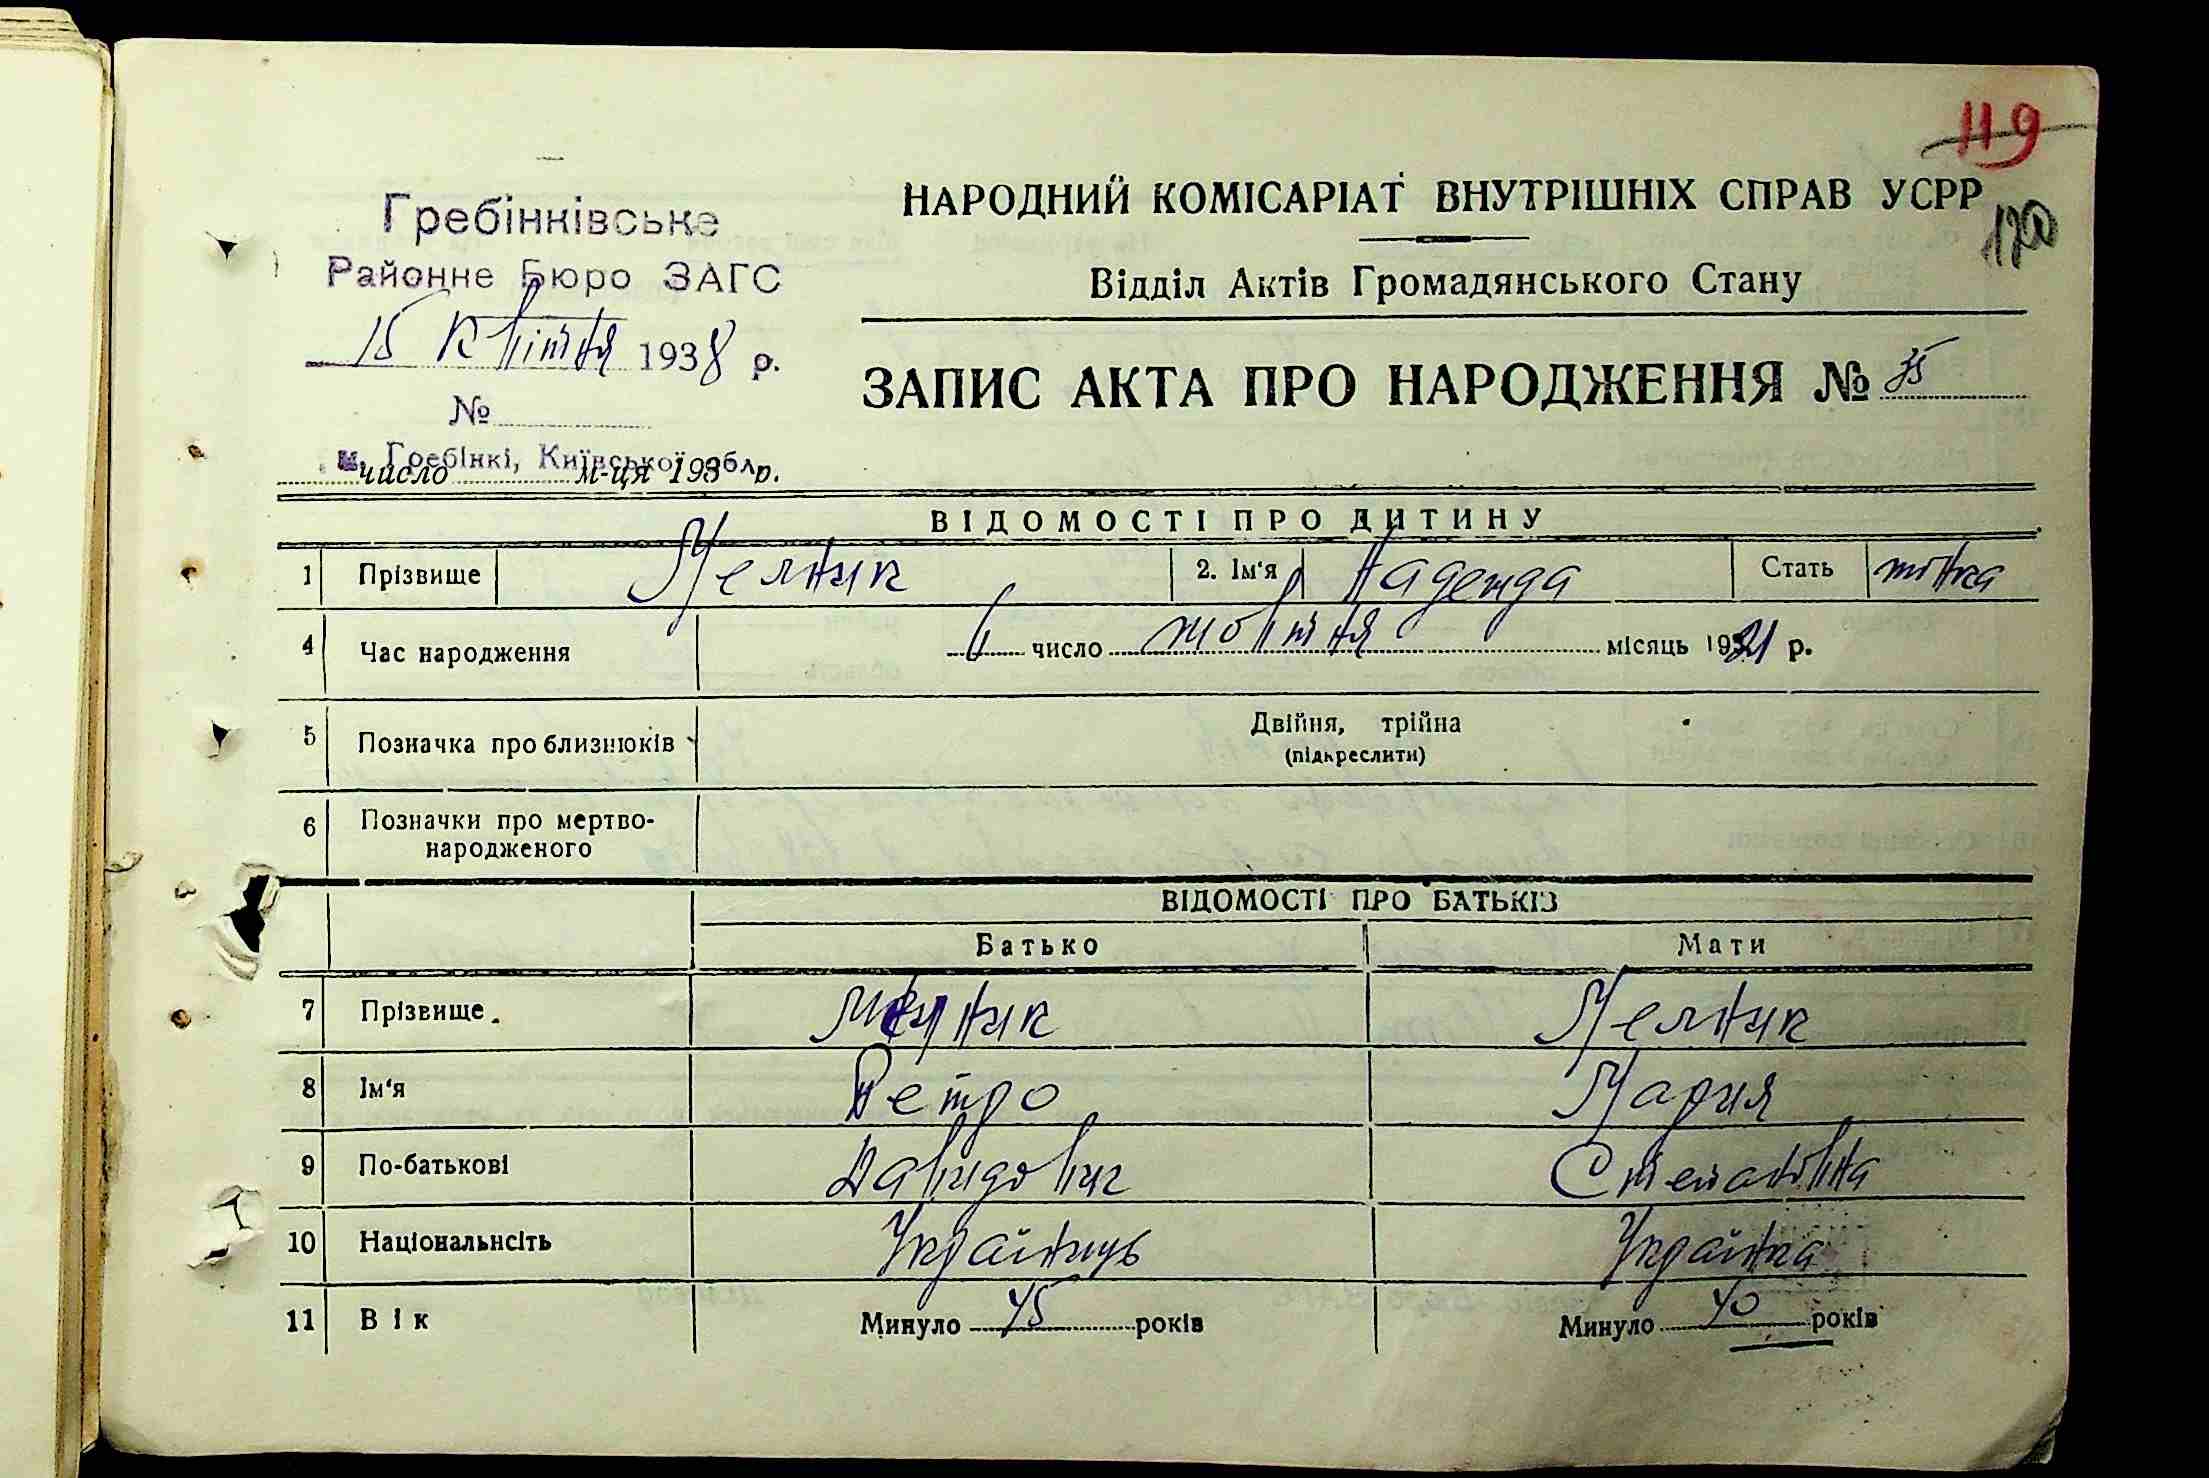 119
120
Гребінківське
Районне Бюро ЗАГС
15 Квітня 1938 р.
№
м. Гребінкі, Київської обл.
число м-ця 193 р.
НАРОДНИЙ КОМІСАРІАТ ВНУТРІШНІХ СПРАВ УСРР
Відділ Актів Громадянського Стану
ЗАПИС АКТА ПРО НАРОДЖЕННЯ № 35
ВІДОМОСТІ ПРО ДИТИНУ
1 Прізвище Мелник 2. Ім'я Надежда Стать жінка
4 Час народження 6 число жовтня місяць 1921 р.
5 Позначка про близнюків Двійня, трійна
(підкреслити)
6 Позначки про мертво-
народженого
ВІДОМОСТІ ПРО БАТЬКІВ
Батько Мати
7 Прізвище. Мелник Мелник
8 Ім'я Петро Мария
9 По-батькові Давидович Степановна
10 Національнсіть Українець Українка
11 Вік Минуло 45 років Минуло 40 років